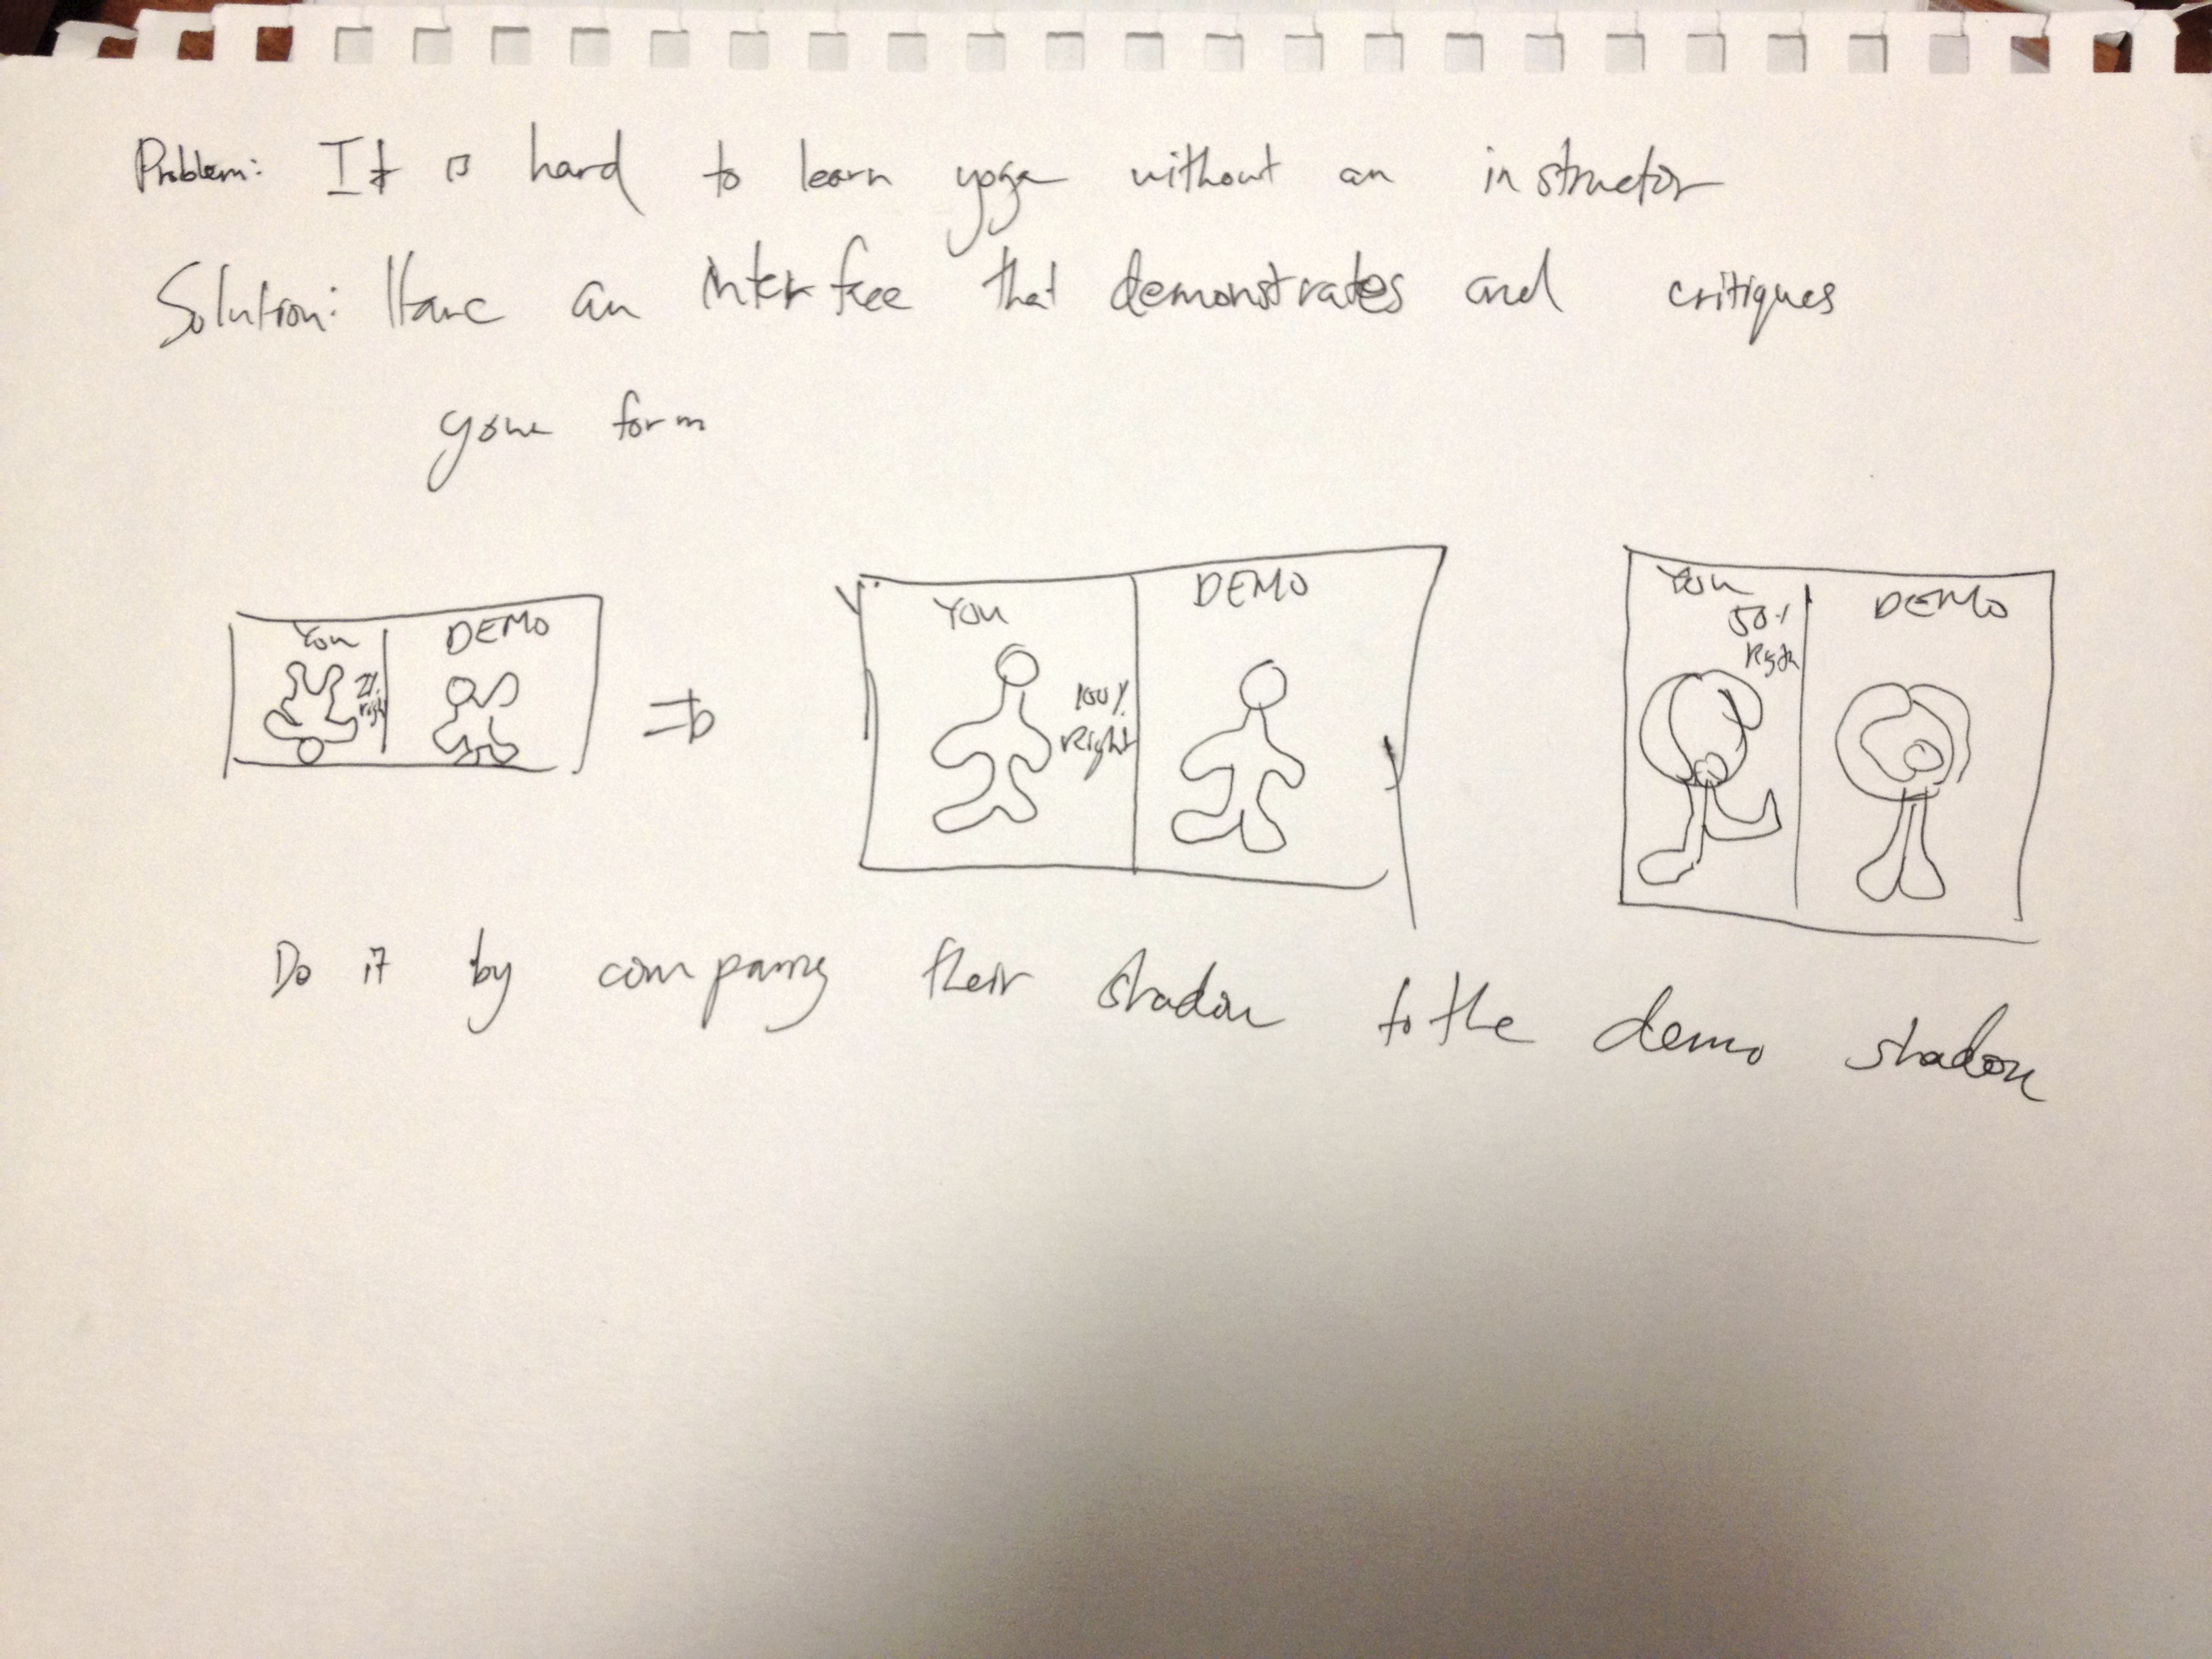 Problem: It is hard to learn yoga without an instructor
Solution: Have an interface that demonstrates and critiques
your form
You DEMO
2% right
You DEMO
100% Right
You DEMO
50% Right
Do it by comparing their shadow to the demo shadow